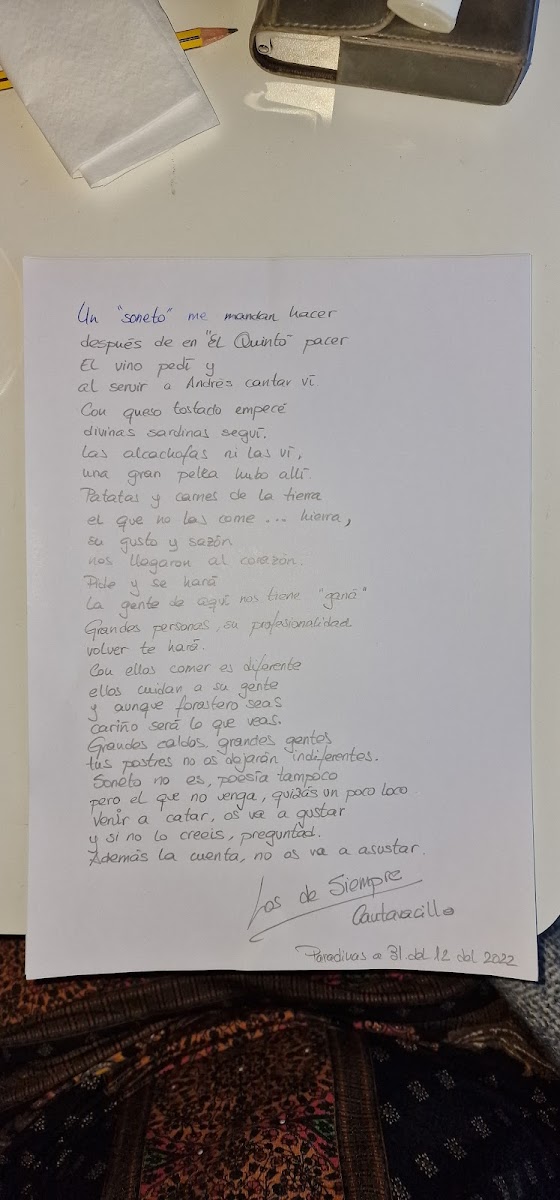 Un "soneto" me mandan hacer
después de en "El Quinto" pacer
El vino pedí y
al servir a Andrés cantar ví.
Con queso tostado empecé
divinas sardinas seguí.
Las alcachofas ni las ví,
una gran pelea hubo allí.
Patatas y carnes de la tierra
el que no las come ... hierra,
su gusto y sazón
nos llegaron al corazón.
Pide y se hará
la gente de aquí nos tiene "ganá"
Grandes personas, su profesionalidad
volver te hará.
Con ellos comer es diferente
ellos cuidan a su gente
y aunque forastero seas
cariño será lo que veas.
Grandes caldos, grandes gentes
tus postres no os dejarán indiferentes.
Soneto no es, poesía tampoco
pero el que no venga, quizás un poco loco.
Venir a catar, os va a gustar
y si no lo creeis, preguntad.
Además la cuenta, no os va a asustar.
Los de Siempre
Paradinas a 31 del 12 del 2022